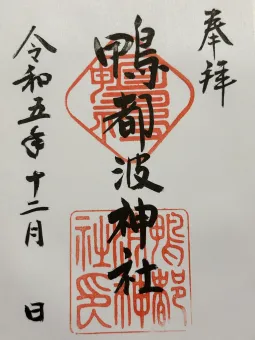 奉拝
鴨都波神社
令和五年十二月 日
鴨都波神社印